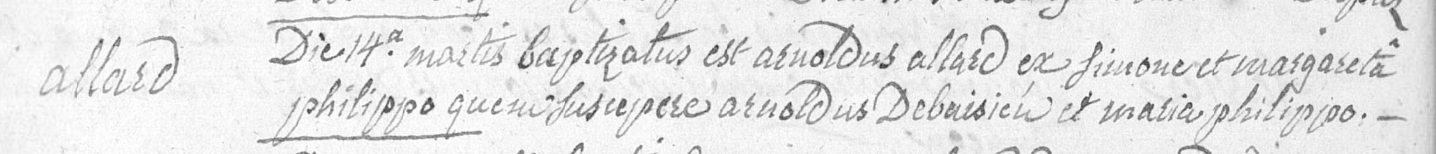 allard
Die 14ª. martis baptizatus est arnoldus allard ex simone et margaretâ
philippo quem suscepere arnoldus Debaisieú et maria philippo. —